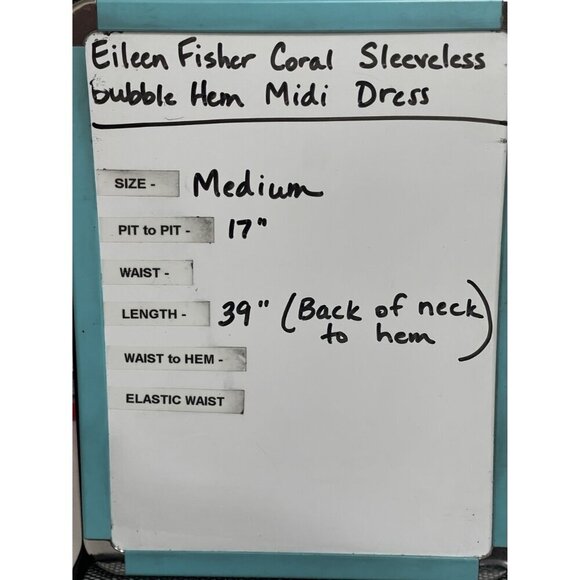 Eileen Fisher Coral Sleeveless
Bubble Hem Midi Dress
SIZE - Medium
PIT to PIT - 17"
WAIST -
LENGTH - 39" (Back of neck
to hem)
WAIST to HEM -
ELASTIC WAIST